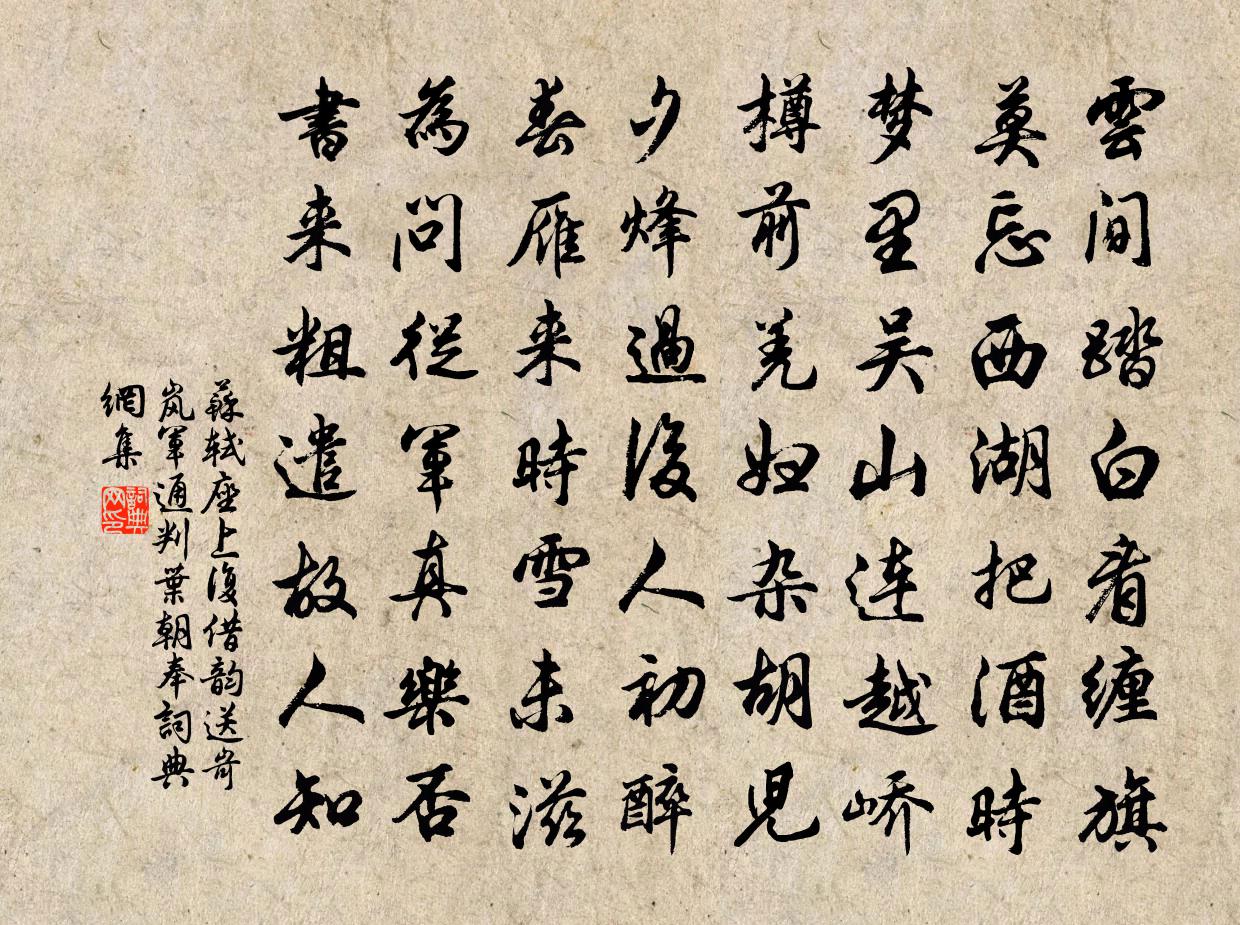 雲間踏白看缠旗
莫忘西湖把酒時
梦里吴山连越峤
樽前羌妇杂胡児
夕烽過後人初醉
春雁来時雪未滋
為問從軍真樂否
書来粗遣故人知
蘇轼座上復借韵送岢
岚軍通判葉朝奉詞典
網集
詞典
网印